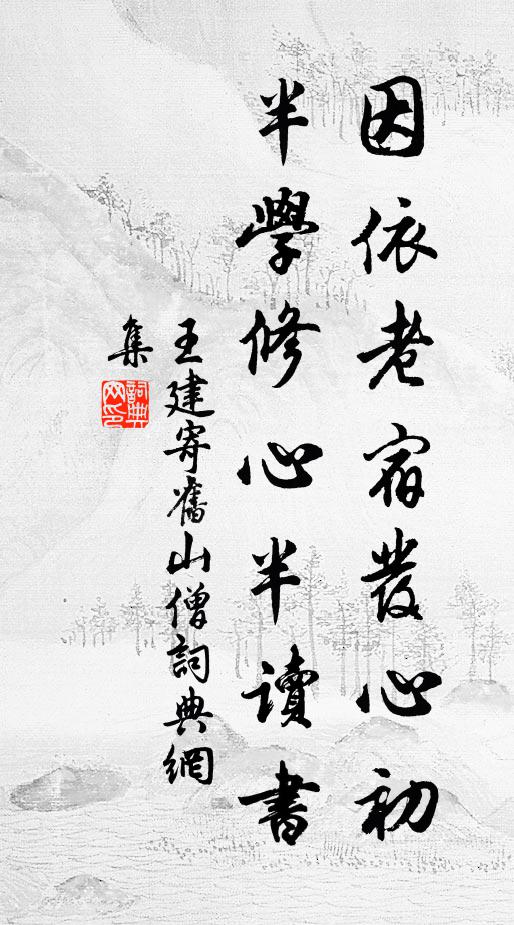 因依老宿發心初
半學修心半讀書
王建寄舊山僧詞典網
集
詞典
网印